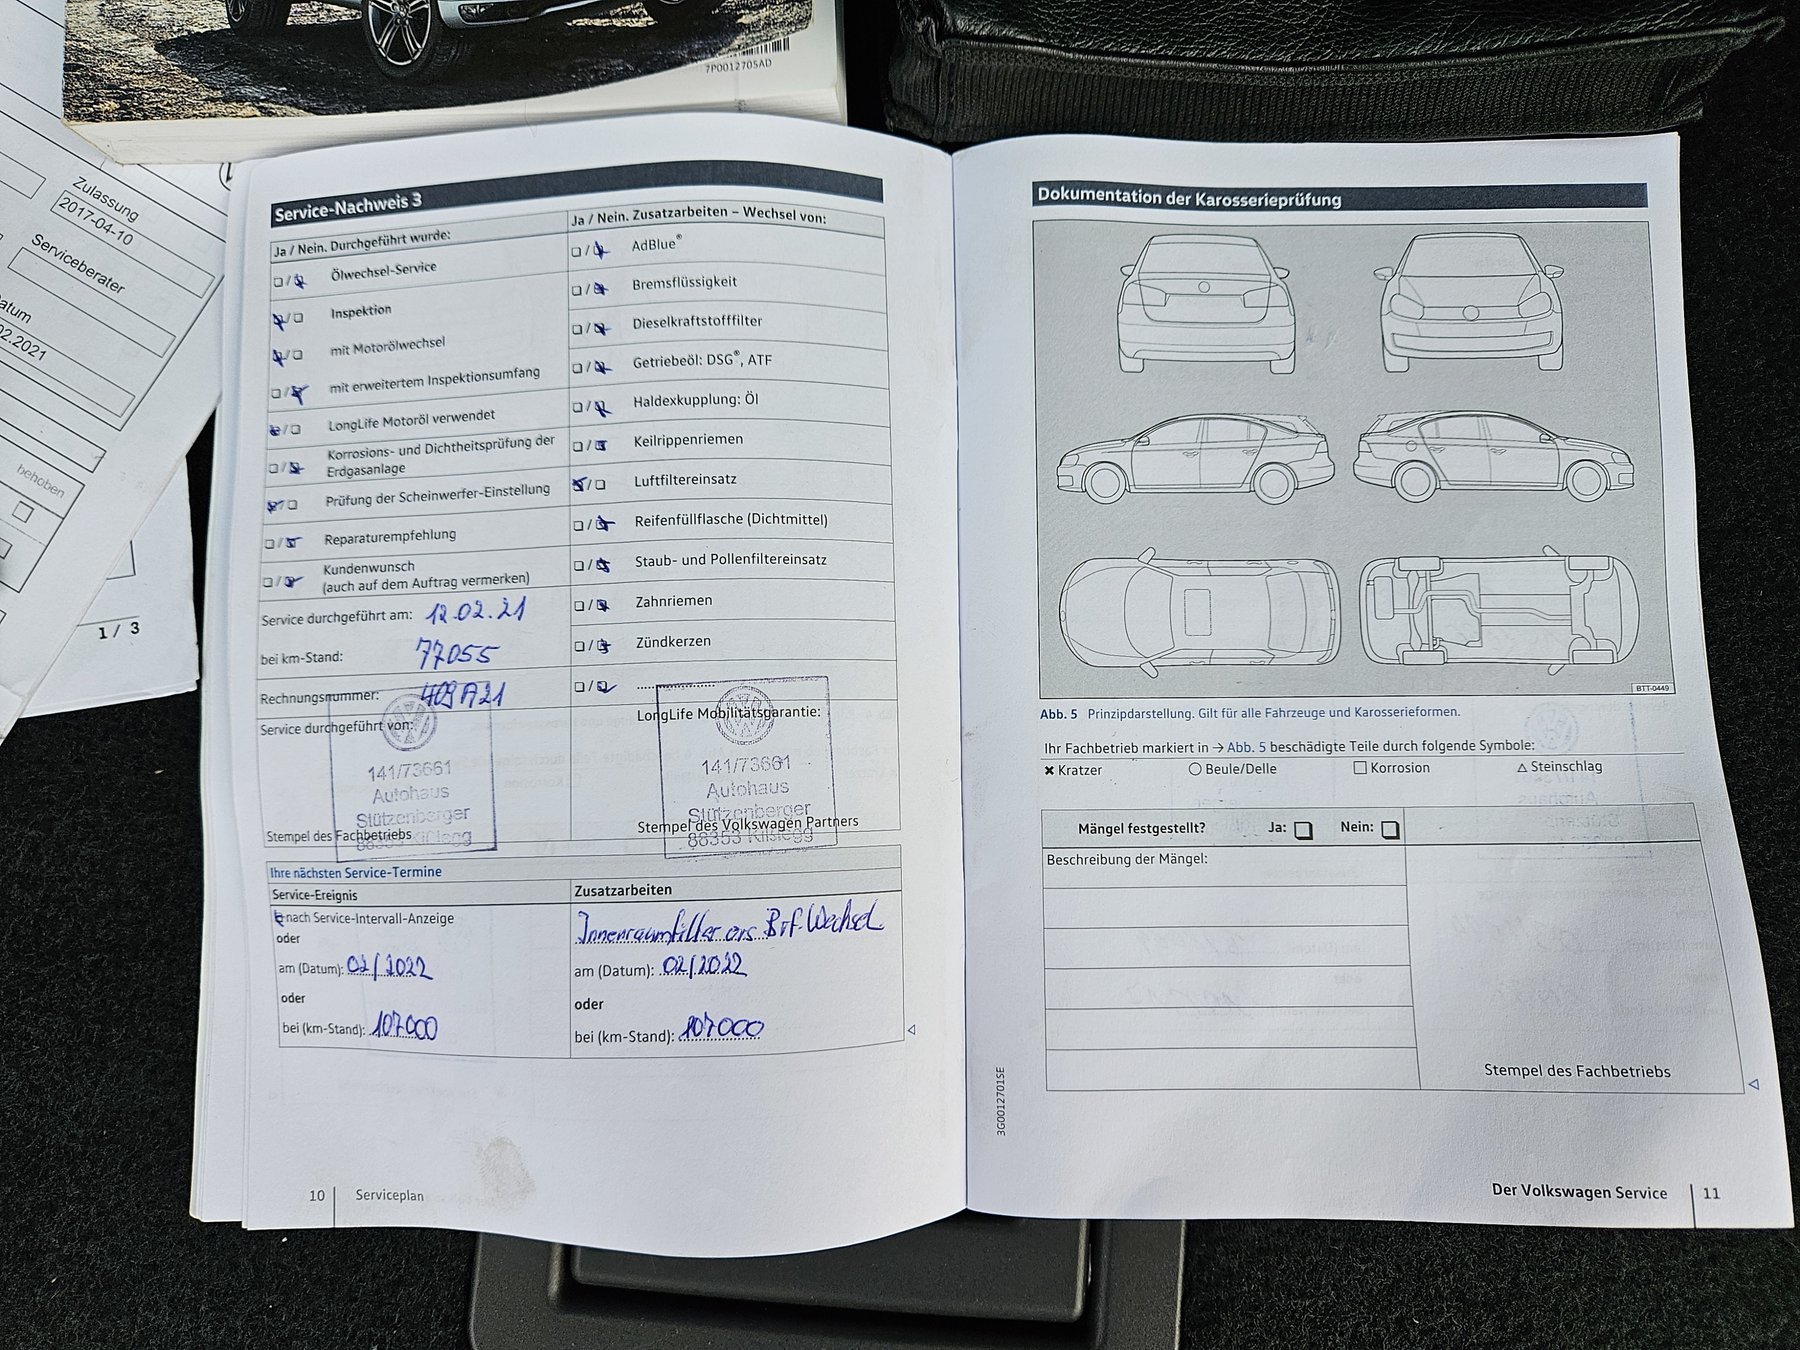 7P0012705AD
Zulassung
2017-04-10
Serviceberater
02.2021
behoben
1 / 3
Service-Nachweis 3
Ja / Nein. Durchgeführt wurde:
Ölwechsel-Service
Inspektion
mit Motorölwechsel
mit erweitertem Inspektionsumfang
LongLife Motoröl verwendet
Korrosions- und Dichtheitsprüfung der
Erdgasanlage
Prüfung der Scheinwerfer-Einstellung
Reparaturempfehlung
Kundenwunsch
(auch auf dem Auftrag vermerken)
Service durchgeführt am: 12.02.21
bei km-Stand: 77055
Rechnungsnummer: 409A21
Service durchgeführt von:
141/73661
Autohaus
Stützenberger
Stempel des Fachbetriebs
Ja / Nein. Zusatzarbeiten – Wechsel von:
AdBlue®
Bremsflüssigkeit
Dieselkraftstofffilter
Getriebeöl: DSG®, ATF
Haldexkupplung: Öl
Keilrippenriemen
Luftfiltereinsatz
Reifenfüllflasche (Dichtmittel)
Staub- und Pollenfiltereinsatz
Zahnriemen
Zündkerzen
LongLife Mobilitätsgarantie:
141/73661
Autohaus
Stützenberger
Stempel des Volkswagen Partners
88353 Kißlegg
Ihre nächsten Service-Termine
Service-Ereignis
nach Service-Intervall-Anzeige
oder
am (Datum): 02/2022
oder
bei (km-Stand): 107000
Zusatzarbeiten
Innenraumfilter ers Brf. Wechsel
am (Datum): 02/2022
oder
bei (km-Stand): 107000
10 Serviceplan
Dokumentation der Karosserieprüfung
BTT-0449
Abb. 5 Prinzipdarstellung. Gilt für alle Fahrzeuge und Karosserieformen.
Ihr Fachbetrieb markiert in → Abb. 5 beschädigte Teile durch folgende Symbole:
Kratzer Beule/Delle Korrosion Steinschlag
Mängel festgestellt? Ja: Nein:
Beschreibung der Mängel:
Stempel des Fachbetriebs
3G0012701SE
Der Volkswagen Service 11